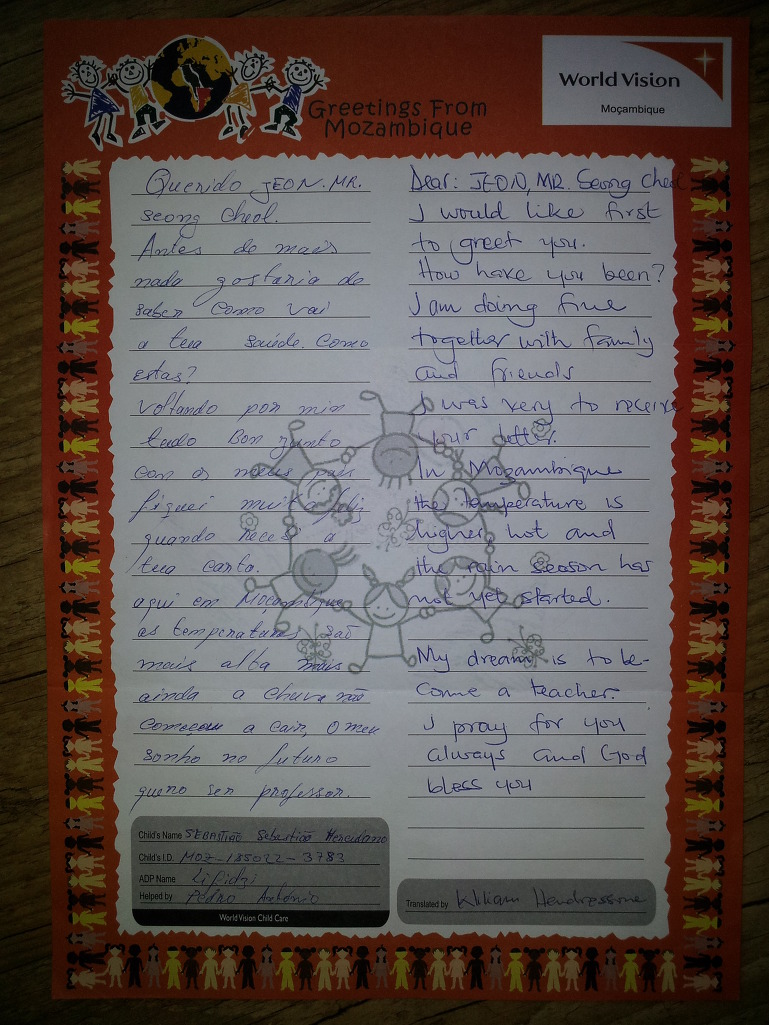 Greetings From
Mozambique
World Vision
Moçambique
Querido JEON. MR.
Seong Cheol.
Antes de mais
nada gostaria de
saber como vai
a tua saúde. Como
estas?
Voltando por mim
tudo Bom junto
com os meus pais
fiquei muito feliz
quando recebi a
tua carta.
aqui em Moçambique
as temperaturas são
mais alta mais
ainda a chuva não
começou a cair, O meu
sonho no futuro
quero ser professor.
Dear: JEON, MR. Seong Cheol
I would like first
to greet you.
How have you been?
I am doing fine
together with family
and friends
I was very to receive
your letter.
In Mozambique
the temperature is
higher, hot and
the rain season has
not yet started.
My dream is to be-
come a teacher.
I pray for you
always and God
bless you
Child's Name SEBASTIÃO Sebastião Herculano
Child's I.D. MOZ-185022-3783
ADP Name Lifidzi
Helped by Pedro António
World Vision Child Care
Translated by